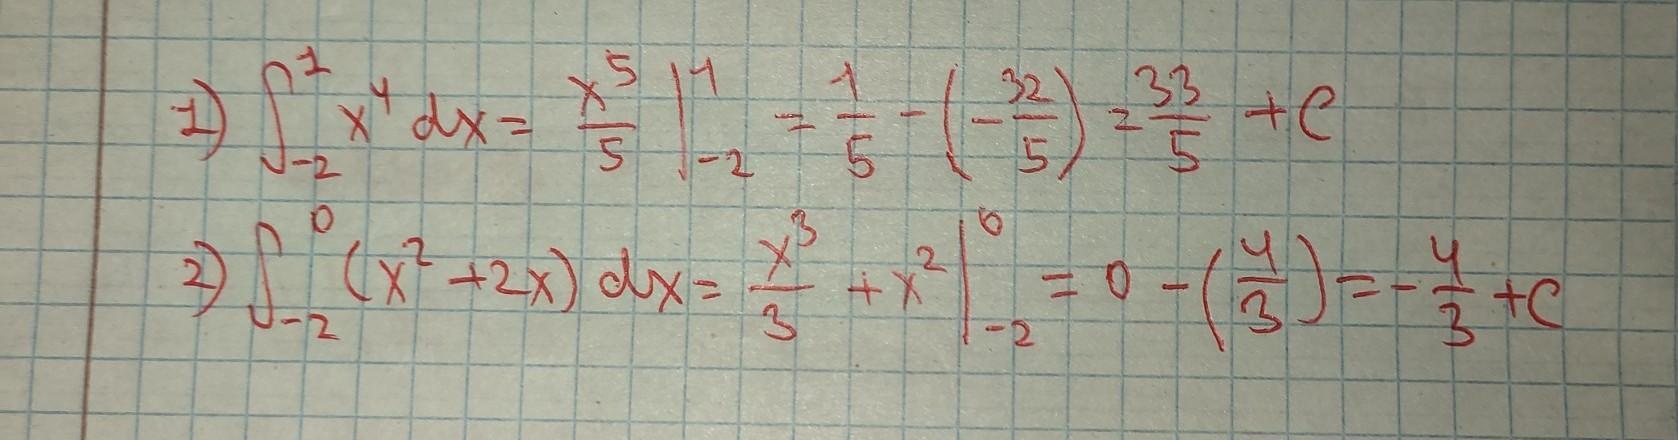 1) ∫₋₂¹ x⁴ dx = x⁵/5 |₋₂¹ = 1/5 - (-32/5) = 33/5 + C
2) ∫₋₂⁰ (x² + 2x) dx = x³/3 + x² |₋₂⁰ = 0 - (4/3) = -4/3 + C